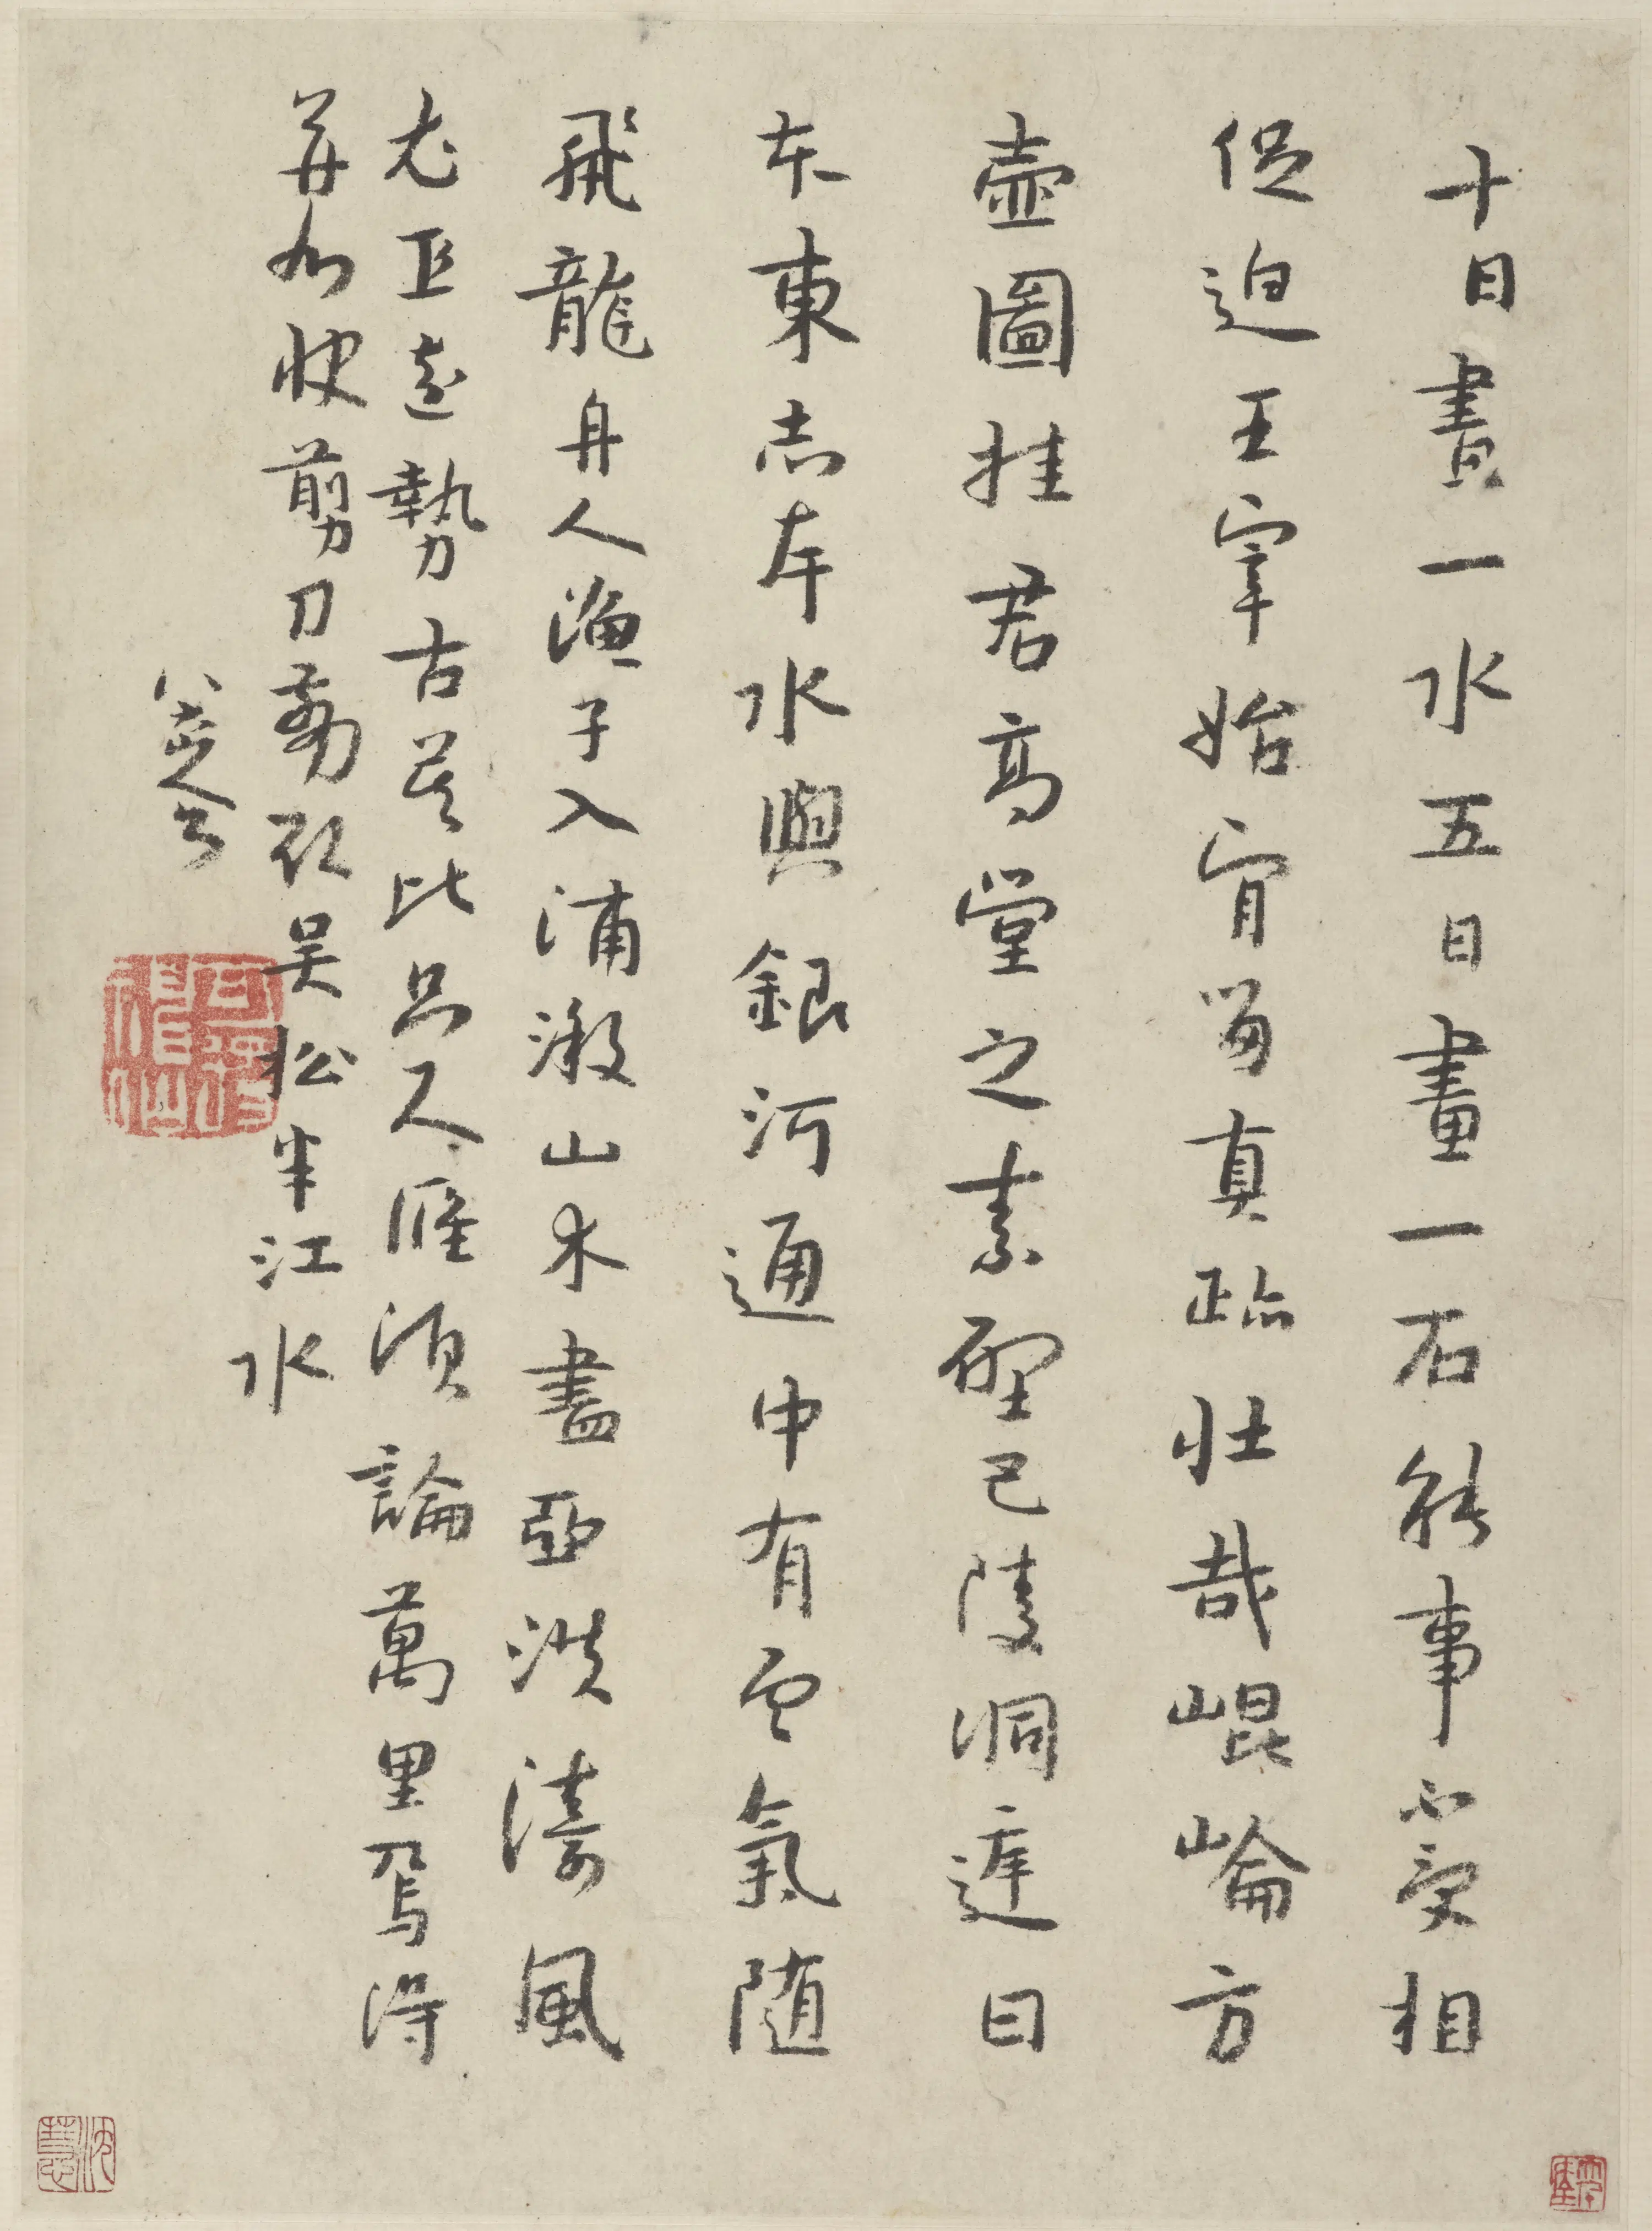 十日畫一水五日畫一石能事不受相
促迫王宰始肎留真跡壯哉崐崘方
壺圖挂君高堂之素壁巴陵洞庭日
本東赤岸水與銀河通中有雲氣随
飛龍舟人漁子入浦漵山木盡亞洪濤風
尤工遠勢古莫比咫尺應須論萬里焉得
并州快剪刀翦取吴松半江水
八大山人
可得神仙